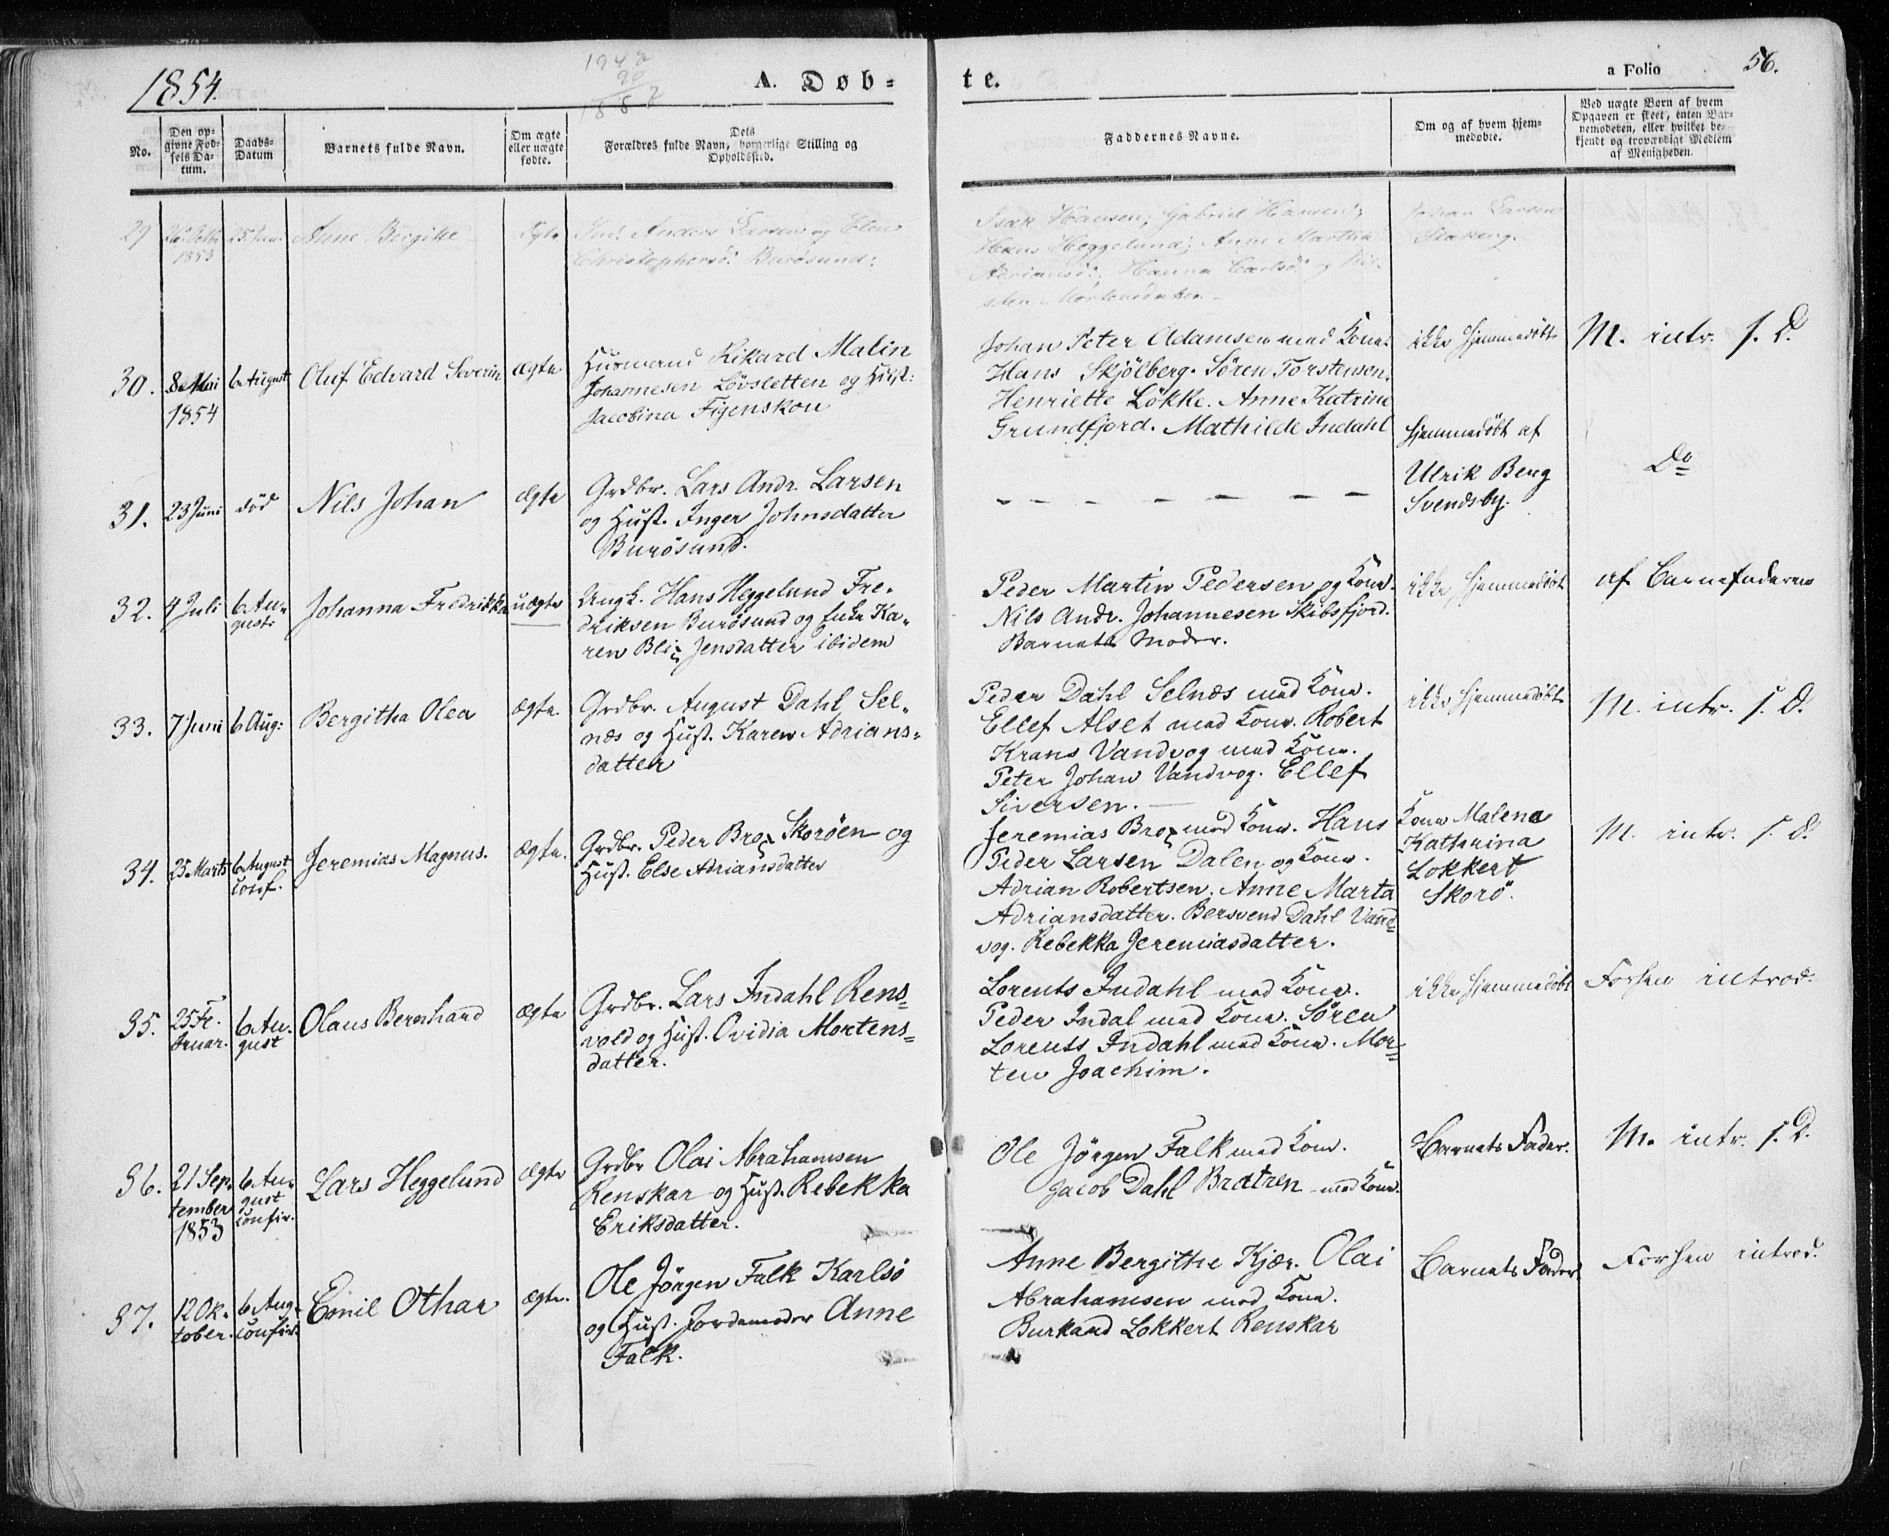 1854.
A. Døb-
te.
a Folio 56.
No.
Den op-
givne Fød-
sels Da-
tum.
Daabs-
Datum
Barnets fulde Navn.
Om ægte
eller uægte
fødte.
Dets
Forældres fulde Navn, borgerlige Stilling og
Opholdssted.
Faddernes Navne.
Om og af hvem hjem-
medøbte.
Ved uægte Børn af hvem
Opgaven er skeet, enten Bar-
nemoderen, eller hvilket be-
kjendt og troværdigt Medlem
af Menigheden.
29
1853
25 Jun.
Anne Bergitte
Anders Larsen og Elen
Christophersd: Burøsund:
Isak Hansen, Gabriel Hansen,
Hans Heggelund, Anne Martha
Adriansd:, Hanna Carlsd: og
Mortensdatter.
Johan Larsen
Stakeng.
30.
8 Mai
1854
6 August
Oluf Edvard Severin
ægte
Husmand Rikard Malin
Johannesen Løvsletten og Hust:
Jacobina Figenskou
Johan Peter Adamsen med Kone.
Hans Skjölberg. Søren Torstensen.
Henriette Løkke. Anne Katrine
Grundfjord. Mathilde Indahl
ikke hjemmedøbt
M. intr. s. D.
31.
23 Juni
død
Nils Johan
ægte
Grdbr. Lars Andr. Larsen
og Hust. Inger Johnsdatter
Burøsund.
- - - - - - -
hjemmedøbt af
Ulrik Berg
Svendsby.
Do
32.
4 Juli
6 Au-
gust
Johanna Fredrikka
uægte
Ungk. Hans Heggelund Fre-
driksen Burøsund og Enke Ka-
ren Blix Jensdatter ibidem
Peder Martin Pedersen og Kone.
Nils Andr. Johannesen Skibsfjord.
Barnets Moder.
ikke hjemmedøbt
af Barnefaderen
33.
7 Juni
6 Aug:
Bergitha Olea
ægte.
Grdbr. August Dahl Sel-
næs og Hust. Karen Adrians-
datter
Peder Dahl Selnæs med Kone.
Ellef Alset med Kone. Robert
Krans Vandvog med Kone.
Peter Johan Vandvog. Ellef
Siversen.
ikke hjemmedøbt
M. intr. s. D.
34.
25 Marts
6 August
conf.
Jeremias Magnus.
ægte.
Grdbr. Peder Brox Skorøen og
Hust. Else Adriansdatter
Jeremias Brox med Kone. Hans
Peder Larsen Dalen og Kone.
Adrian Robertsen. Anne Marta
Adriansdatter. Bersvend Dahl Vand-
vog. Rebekka Jeremiasdatter.
Kone Malena
Kathrina
Lokkert
Skorø.
M. intr. s. D.
35.
25 Fe-
bruar.
6 Au-
gust
Olaus Bernhard
ægte
Grdbr. Lars Indahl Rens-
vold og Hust. Ovidia Mortens-
datter.
Lorents Indahl med Kone.
Peder Indal med Kone. Søren
Lorents Indahl med Kone. Mor-
ten Joachim.
ikke hjemmedøbt
Forhen introd.
36.
21 Sep-
tember
1853
6 Au-
gust
confir.
Lars Heggelund
ægte
Grdbr Olai Abrahamsen
Renskar og Hust. Rebekka
Eriksdatter.
Ole Jörgen Falk med Kone.
Jacob Dahl Bratren med Kone.
Barnets Fader.
M. intr. s. D.
37.
12 Ok-
tober.
6 Aug.
confir.
Emil Othar
ægte.
Ole Jörgen Falk Karlsø
og Hust. Jordemoder Anne
Falk.
Anne Bergithe Kjær. Olai
Abrahamsen med Kone.
Burkard Lokkert Renskar
Barnets Fader
Forhen introd.